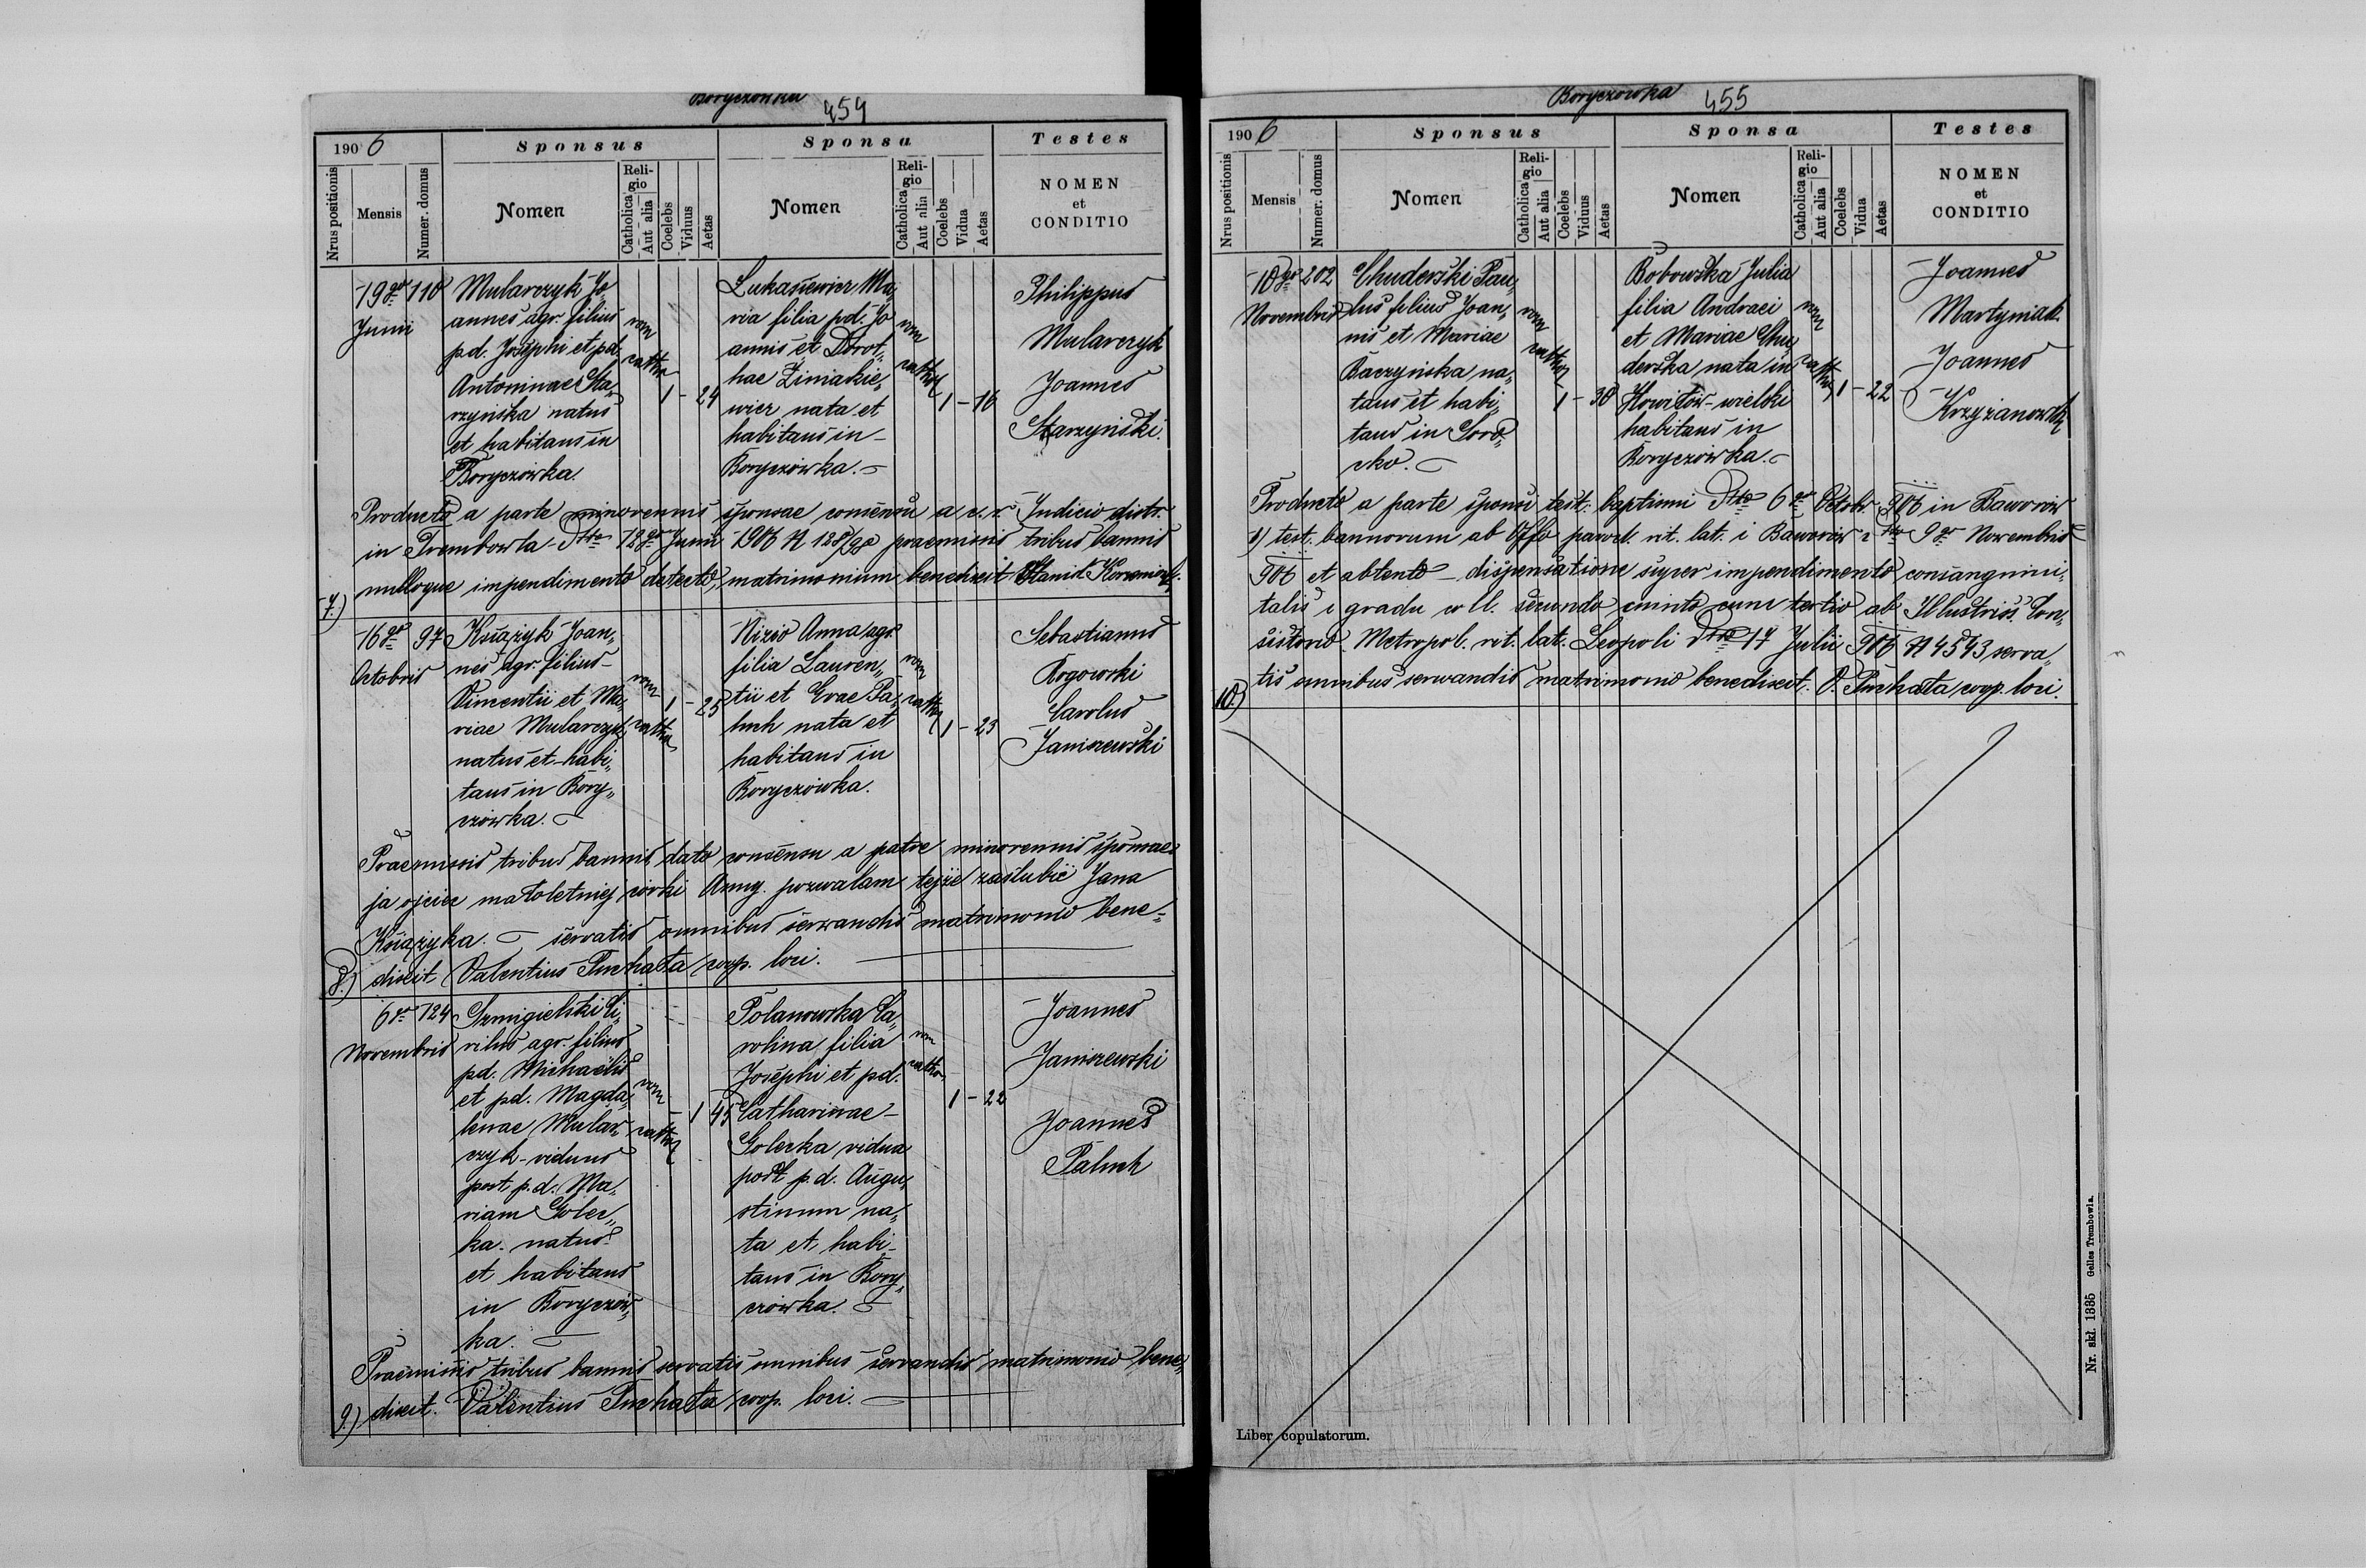 Boryczówka
454
1906
Sponsus
Sponsa
Testes
Nrus positionis
Mensis
Numer. domus
Nomen
Religio
Catholica
Aut alia
Coelebs
Viduus
Aetas
Nomen
Religio
Catholica
Aut alia
Coelebs
Vidua
Aetas
NOMEN
et
CONDITIO
19
Junii
110
Mularczyk Jo„
annes agr. filius
pd. Josephi et pd.
Antoninae Sta„
rzyńska natus
et habitans in
Boryczówka.
rom
cath
1 - 24
Łukasiewicz Ma„
ria filia pd. Jo„
annis et Dorot„
hae Ziniakie„
wicz nata et
habitans in
Boryczówka.
rom
cathol
1 - 16
Philippus
Mularczyk
Joannes
Starzyński.
Producto a parte minorennis sponsae consensu a c. r. Judicio distr.
in Trembowla dto 12 Junii 1906 N 128/ praemissis tribus bannis
nulloque impendimento detecto, matrimonium benedixit Stanisl.
7.)
16
Octobris
97
Książyk Joan„
nes agr. filius
Vincentii et Ma„
riae Mularczyk
natus et habi„
tans in Bory„
czówka.
rom
cathol
1 - 25
Nizio Anna agr.
filia Lauren„
tii et Evae Pa„
luch nata et
habitans in
Boryczówka.
rom
cathol
1 - 23
Sebastianus
Rogowski
Carolus
Janiszewski
Praemissis tribus bannis, dato consensu a patre minorennis sponsae
ja ojciec małoletniej córki Anny. pozwalam tejże zaślubić Jana
Książyka. servatis omnibus servandis matrimonio bene„
8.) dixit Valentius Puchała coop. loci.
6
Novembris
124
Szmigielski Ci„
rilus agr. filius
pd. Michaelis
et pd. Magda„
lenae Mular„
czyk - viduus
post p.d. Ma„
riam Golec„
ka. natus
et habitans
in Boryczów„
ka.
rom
cathol
- 1 45
Polanowska Ca„
rolina filia
Josephi et pd.
Catharinae
Golecka vidua
post p.d. Augu„
stinum na„
ta et habi„
tans in Bory„
czówka.
rom
cathol
1 - 22
Joannes
Janiszewski
Joannes
Paluch
Praemissis tribus bannis servatis omnibus servandis matrimonio bene„
9.) dixit. Valentius Puchała coop. loci.
Boryczówka
455
1906
Sponsus
Sponsa
Testes
Nrus positionis
Mensis
Numer. domus
Nomen
Religio
Catholica
Aut alia
Coelebs
Viduus
Aetas
Nomen
Religio
Catholica
Aut alia
Coelebs
Vidua
Aetas
NOMEN
et
CONDITIO
10
Novembris
202
Chuderski Pau„
lus filius Joan„
nis et Mariae
Baczyńska na„
tans et habi„
tans in Soro„
cko.
rom
cathol
1 - 30
Bobowska Julia
filia Andraei
et Mariae Chu„
derska nata in
Howiłów-wielki
habitans in
Boryczówka.
rom
cathol
1 - 22
Joannes
Martyniak.
Joannes
Krzyżanowski
Producto a parte sponsi test. baptismi dto 6 Octobr. 906 in Baworów
test. bannorum ab Offo paroch. rit. lat. i Baworów 9 Novembris
906 et abtento dispensatione super impendimento consanguini„
talis i gradu coll. secundo cum tertio ab Illustriss. Con„
sistorio Metropol. rit. lat. Leopoli dto 17 Julii 906 N 4543 serva„
tis omnibus servandis matrimonio benedixit. V. Puchała coop. loci.
10.)
Liber copulatorum.
Nr. skł. 1335 Gelles Trembowla.